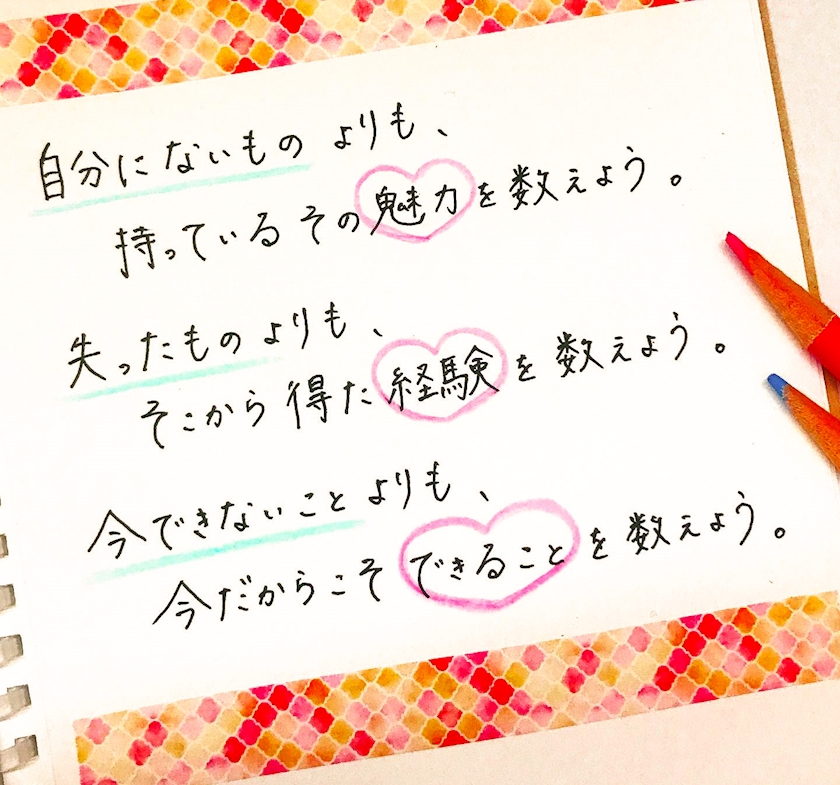 自分にないものよりも、
持っているその魅力を数えよう。
失ったものよりも、
そこから得た経験を数えよう。
今できないことよりも、
今だからこそできることを数えよう。